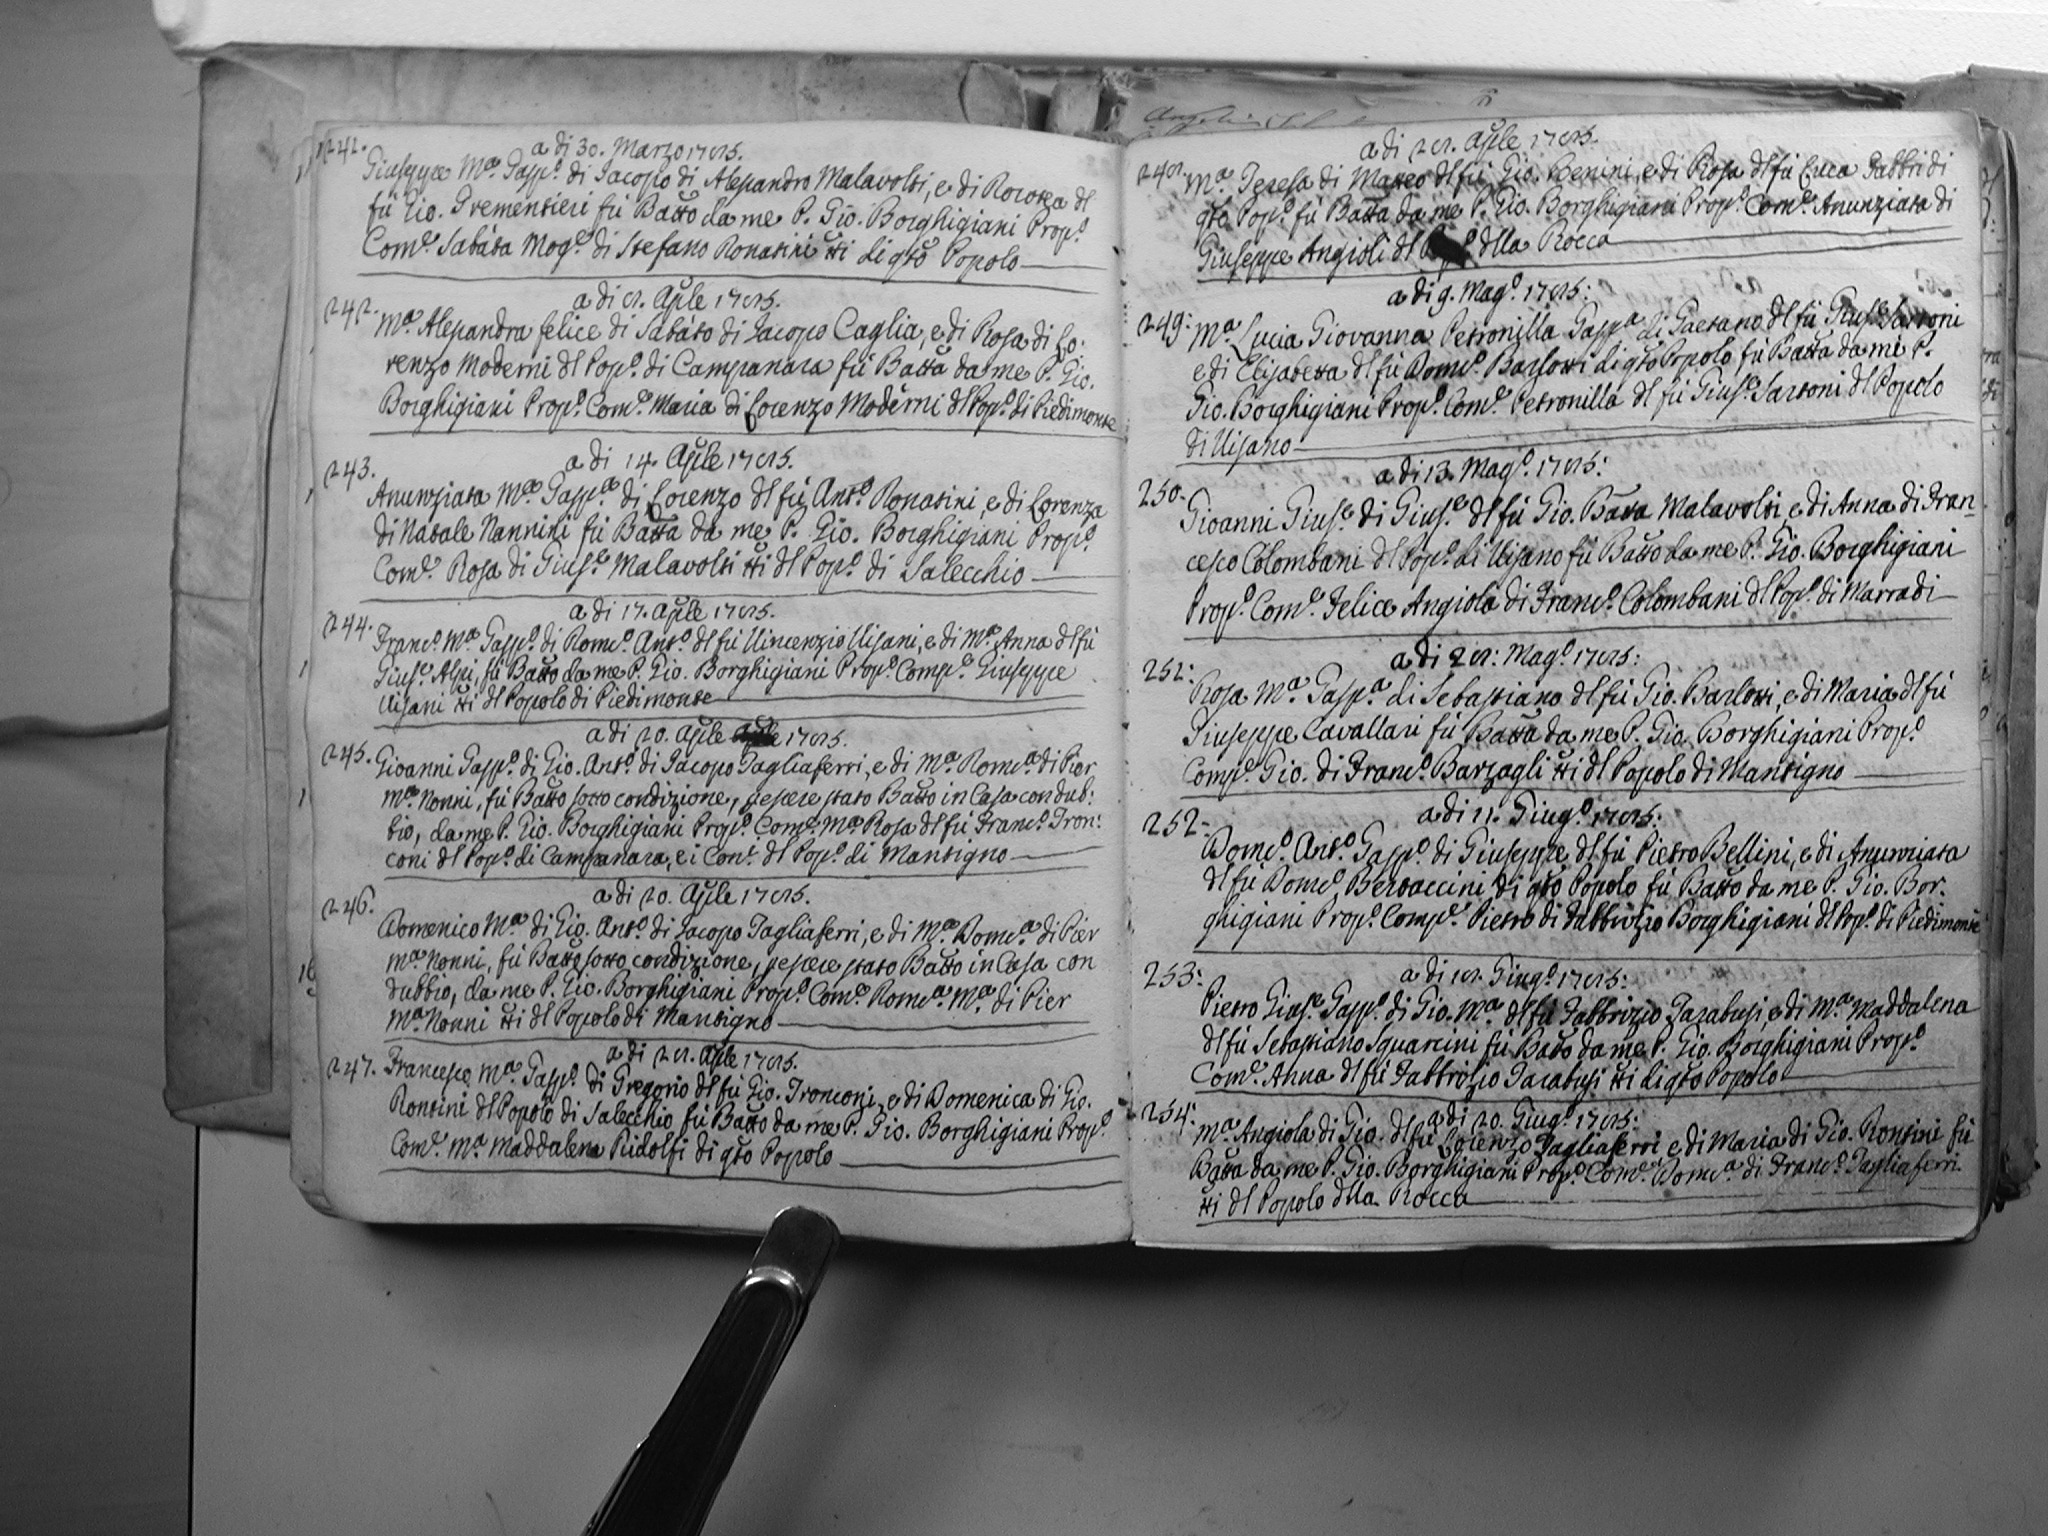 241.
a di 30. Marzo 1785.
Giuseppe Mª. Gaspº. di Jacopo di Alessandro Malavolti, e di Dorotea dl
fú Gio. Frementieri fú Batto da me P. Gio. Borghigiani Propº.
Comᵉ. Sabata Mogᵉ. di Stefano Ronatini tti di qto Popolo
242.
a di 8. Aple 1785.
Mª. Alessandra felice di Sabato di Jacopo Caglia, e di Rosa di Lo-
renzo Moderni dl Popº. di Campanara fú Batta da me P. Gio.
Borghigiani Propº. Comᵉ. Maria di Lorenzo Moderni dl Popº. di Piedimonte
243.
a di 14. Aple 1785.
Anunziata Mª. Gaspª. di Lorenzo dl fú Antº. Ronatini, e di Lorenza
di Natale Nannini fú Batta da me P. Gio. Borghigiani Propº.
Comᵉ. Rosa di Giusᵉ. Malavolti tti dl Popº. di Salecchio
244.
a di 17. Aple 1785.
Francº. Mª. Gaspº. di Domᶜᵒ. Antº. dl fú Vincenzio Visani, e di Mª. Anna dl fú
Giusᵉ. Alpi, fú Batto da me P. Gio. Borghigiani Propº. Compᵉ. Giuseppe
Visani tti dl Popolo di Piedimonte
a di 20. Aple 1785.
245.
Gioanni Gaspº. di Gio. Antº. di Jacopo Tagliaferri, e di Mª. Domᶜᵃ. di Pier
Mª. Nonni, fú Batto sotto condizione, p essere stato Batto in Casa con dub:
bio, da me P. Gio. Borghigiani Propº. Comᵉ. Mª. Rosa dl fú Francº. Tron:
coni dl Popº. di Campanara, e i Conⁱ. dl Popº. di Mantigno
246.
a di 20. Aple 1785.
Domenico Mª. di Gio. Antº. di Jacopo Tagliaferri, e di Mª. Domᶜᵃ. di Pier
Mª. Nonni, fú Batto sotto condizione, p essere stato Batto in Casa con
dubbio, da me P. Gio. Borghigiani Propº. Comᵉ. Domᶜᵃ. Mª. di Pier
Mª. Nonni tti dl Popolo di Mantigno
a di 28. Aple 1785.
247.
Francesco Mª. Gaspº. di Gregorio dl fú Gio. Tronconi, e di Domenica di Gio.
Rontini dl Popolo di Salecchio fú Batto da me P. Gio. Borghigiani Propº.
Comᵉ. Mª. Maddalena Ridolfi di qto Popolo
a di 28. Aple 1785.
248.
Mª. Teresa di Matteo dl fú Gio. Benini, e di Rosa dl fú Luca Fabbri di
qto Popº. fú Batta da me P. Gio. Borghigiani Propº. Comᵉ. Anunziata di
Giuseppe Angioli dl dlla Rocca
a di 9. Magº. 1785:
249:
Mª. Lucia Giovanna Petronilla Gaspª. di Gaetano dl fú Giusᵉ. Sartoni
e di Elisabetta dl fú Domᶜᵒ. Barlotti di qto Popolo fú Batta da me P.
Gio. Borghigiani Propº. Comᵉ. Petronilla dl fú Giusᵉ. Sartoni dl Popolo
di Visano
a di 13. Magº. 1785:
250.
Gioanni Giusᵉ. di Giusᵉ. dl fú Gio. Bata Malavolti, e di Anna di Fran-
cesco Colombani dl Popº. di Visano fú Batto da me P. Gio. Borghigiani
Propº. Comᵉ. Felice Angiola di Francº. Colombani dl Popº. di Marradi
a di 28: Magº. 1785:
251:
Rosa Mª. Gaspª. di Sebastiano dl fú Gio. Barlotti, e di Maria dl fú
Giuseppe Cavallari fú Batta da me P. Gio. Borghigiani Propº.
Compᵉ. Gio. di Francº. Barzagli tti dl Popolo di Mantigno
a di 11. Giugº. 1785:
252.
Domᶜᵒ. Antº. Gaspº. di Giuseppe dl fú Pietro Bellini, e di Anunziata
dl fú Domᶜᵒ. Bertaccini di qto Popolo fú Batto da me P. Gio. Bor-
ghigiani Propº. Compᵉ. Pietro di Fabbrizio Borghigiani dl Popº. di Piedimonte
a di 18. Giugº. 1785:
253:
Pietro Giusᵉ. Gaspº. di Gio. Mª. dl fú Fabbrizio Tarabusi, e di Mª. Maddalena
dl fú Sebastiano Squarcini fú Batto da me P. Gio. Borghigiani Propº.
Comᵉ. Anna dl fú Fabbrizio Tarabusi tti di qto Popolo
a di 20. Giugº. 1785:
254:
Mª. Angiola di Gio. dl fú Lorenzo Tagliaferri e di Maria di Gio. Rontini fú
Batta da me P. Gio. Borghigiani Propº. Comᵉ. Domᶜᵃ. di Francº. Tagliaferri
tti dl Popolo dlla Rocca